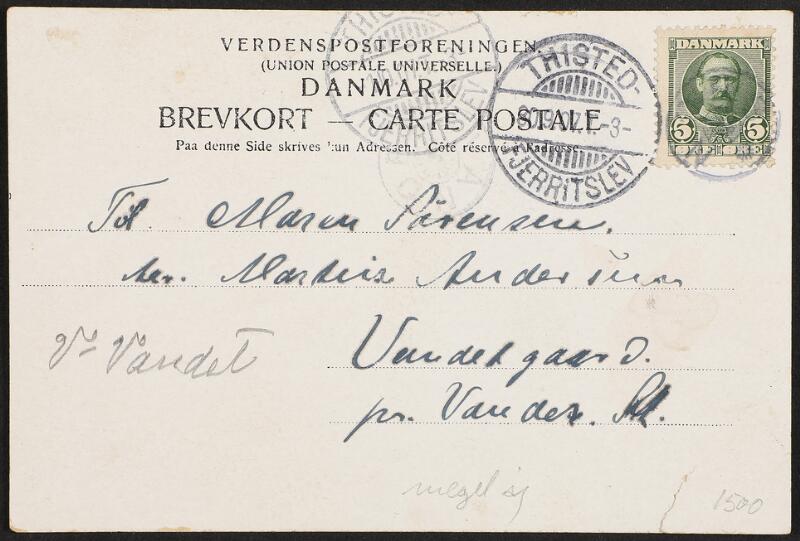 VERDENSPOSTFORENINGEN.
(UNION POSTALE UNIVERSELLE.)
DANMARK
BREVKORT — CARTE POSTALE
Paa denne Side skrives kun Adressen. Côté réservé à l'adresse.
THISTED-
FJERRITSLEV
THISTED-
FJERRITSLEV
DANMARK
5 5
ØRE ØRE
Til Maren Sørensen.
Martins Andersen
Vandetgaard.
pr. Vandet. St.
Vandet
1500